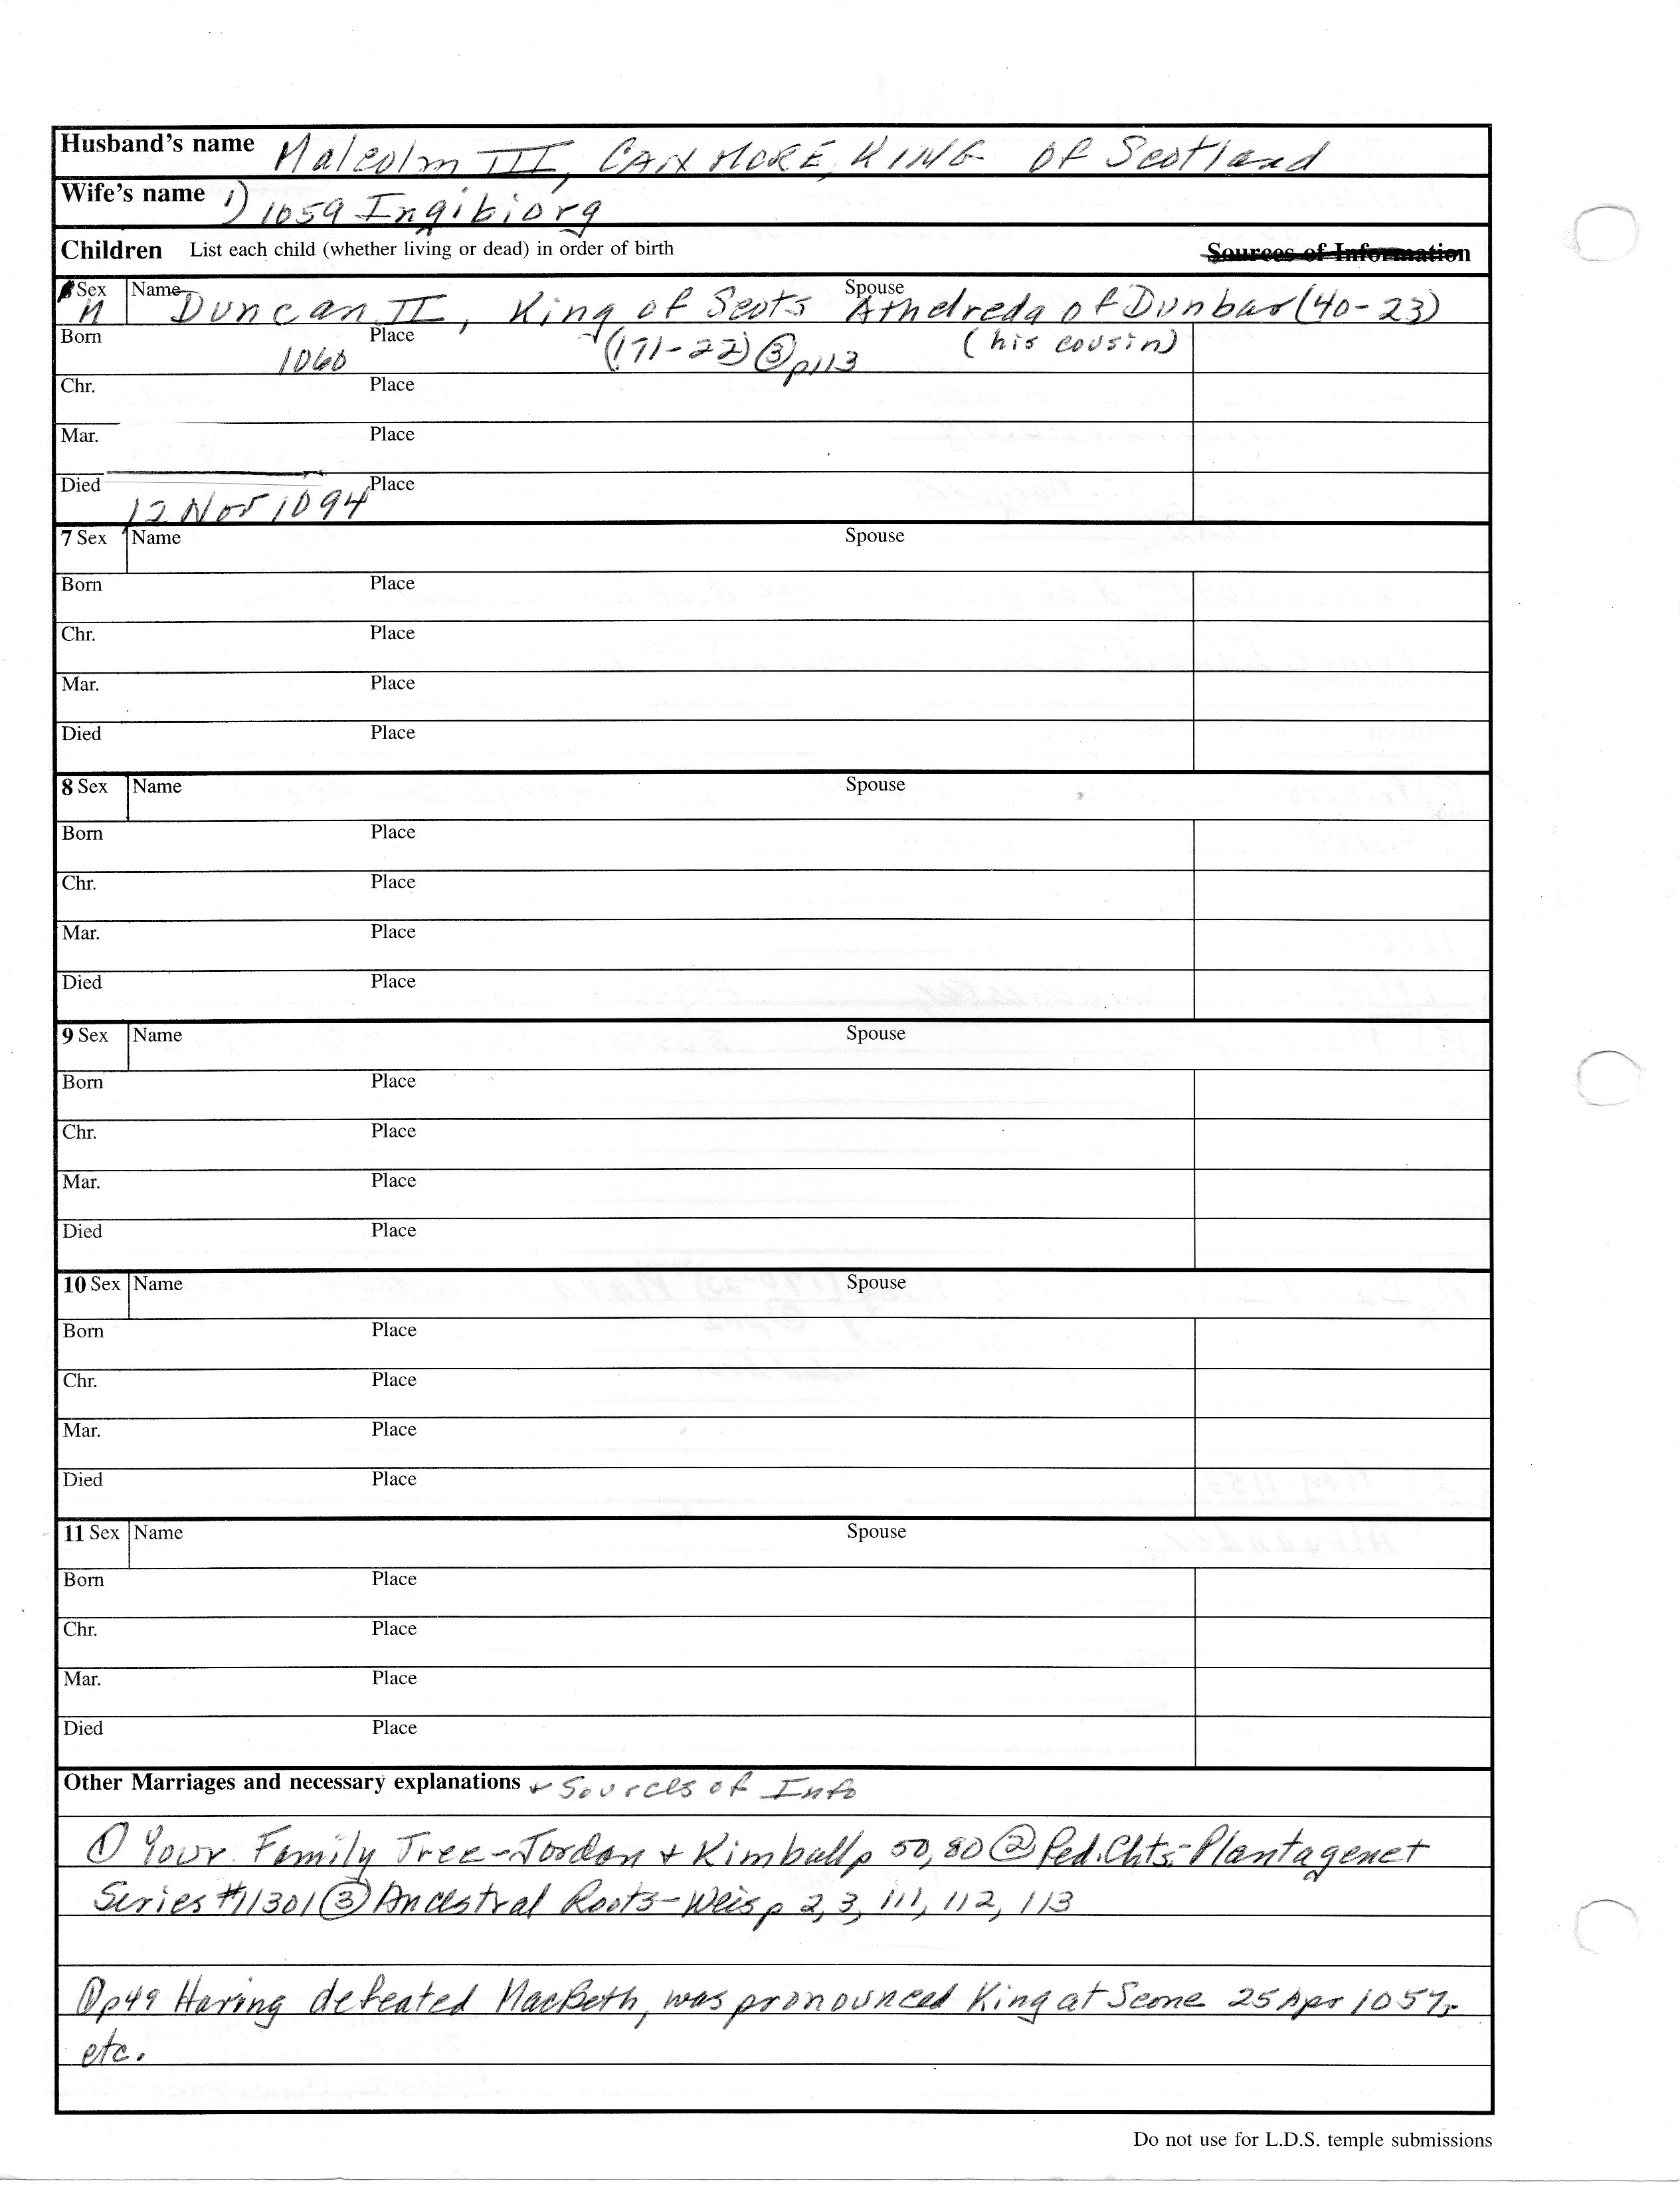 Husband's name Malcolm III, CANMORE, KING of Scotland
Wife's name 1) 1059 Ingibiorg
Children List each child (whether living or dead) in order of birth Sources of Information
Sex Name Spouse
M Duncan II, King of Scots Athelreda of Dunbar (40-23)
Born 1060 Place (171-22) ③ p113 (his cousin)
Chr. Place
Mar. Place
Died 12 Nov 1094 Place
7 Sex Name Spouse
Born Place
Chr. Place
Mar. Place
Died Place
8 Sex Name Spouse
Born Place
Chr. Place
Mar. Place
Died Place
9 Sex Name Spouse
Born Place
Chr. Place
Mar. Place
Died Place
10 Sex Name Spouse
Born Place
Chr. Place
Mar. Place
Died Place
11 Sex Name Spouse
Born Place
Chr. Place
Mar. Place
Died Place
Other Marriages and necessary explanations + Sources of Info
① Your Family Tree-Jordan + Kimball p 50, 80 ② Ped. Chts.-Plantagenet
Series #11301 ③ Ancestral Roots-Weis p 2, 3, 111, 112, 113
① p49 Having defeated MacBeth, was pronounced King at Scone 25 Apr 1057,
etc.
Do not use for L.D.S. temple submissions